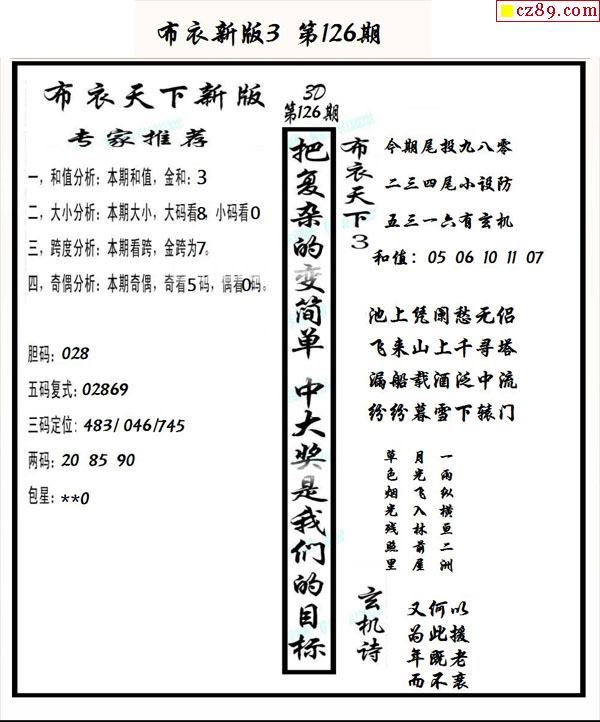 cz89.com
布衣新版3 第126期
布衣天下新版
专家推荐
一，和值分析：本期和值，金和：3
二，大小分析：本期大小，大码看8，小码看0
三，跨度分析：本期看跨，金跨为7。
四，奇偶分析：本期奇偶，奇看5码，偶看0码。
胆码：028
五码复式：02869
三码定位：483/ 046/745
两码：20 85 90
包星：**0
3D
第126期
把复杂的变简单 中大奖是我们的目标
布衣天下3
今期尾投九八零
二三四尾小设防
五三一六有玄机
和值：05 06 10 11 07
池上凭阑愁无侣
飞来山上千寻塔
漏船载酒泛中流
纷纷暮雪下辕门
一雨纵横亘二洲
月光飞入林前屋
草色烟光残照里
玄机诗
又何以
为此援
年既老
而不衰